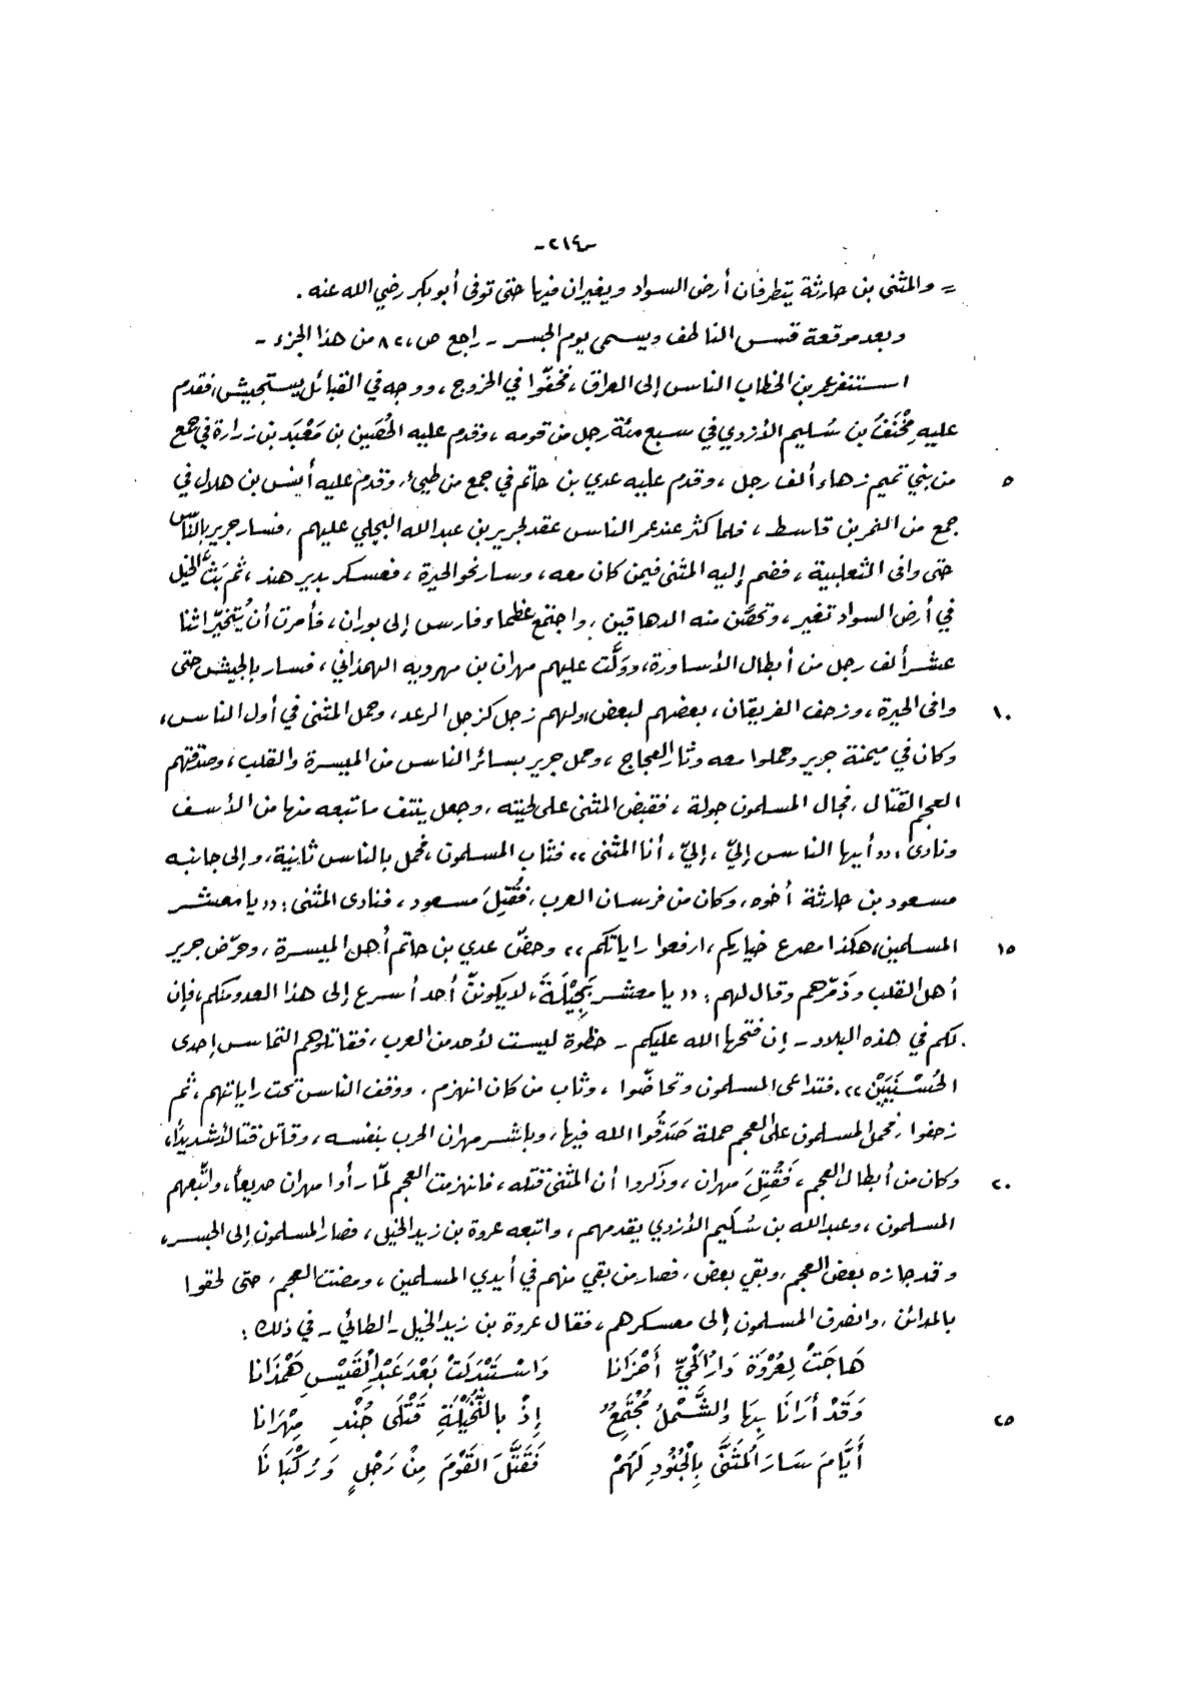 -٢١٤-
= والمثنى بن حارثة يتطرفان أرض السواد ويغيران فيها حتى توفى أبو بكر رضي الله عنه .
وبعد موقعة قس الناطف ويسمى يوم الجسر - راجع ص،٨٢ من هذا الجزء -
استنفر عمر بن الخطاب الناس إلى العراق ، فخفّوا في الخروج ، ووجه في القبائل يستجيش، فقدم
عليه مِخْنَفُ بن سُليم الأزدي في سبع مئة رجل من قومه ، وقدم عليه الحُصَين بن مَعْبَد بن زرارة في جمع
٥ من بني تميم زهاء ألف رجل ، وقدم عليه عدي بن حاتم في جمع من طيئ، وقدم عليه أنس بن هلال في
جمع من النمر بن قاسط ، فلما كثر عند عمر الناس عقد لجرير بن عبد الله البجلي عليهم ، فسار جرير بالنّاس
حتى وافى الثعلبية ، فضم إليه المثنى فيمن كان معه ، وسار نحو الحيرة ، فعسكر بدير هند ، ثم بَثَّ الخيل
في أرض السواد تغير ، وتحصّن منه الدهاقين ، واجتمع عظماء فارس إلى بوران ، فأمرت أن يُتخيّر اثنا
عشر ألف رجل من أبطال الأساورة، وولَّت عليهم مهران بن مهرويه الهمذاني ، فسار بالجيش حتى
١٠ وافى الحيرة ، وزحف الفريقان ، بعضهم لبعض، ولهم زجل كزجل الرعد ، وحمل المثنى في أول الناس ،
وكان في ميمنة جرير وحملوا معه وثار العجاج ، وحمل جرير بسائر الناس من الميسرة والقلب ، وصدقتهم
العجم القتال ، فجال المسلمون جولة ، فقبض المثنى على لحيته ، وجعل ينتف ما تبعه منها من الأسف
ونادى ،، أيها الناس إليّ ، إليّ ، أنا المثنى ،، فثاب المسلمون ، فحمل بالناس ثانية، وإلى جانبه
مسعود بن حارثة أخوه ، وكان من فرسان العرب ، فقُتِلَ مسعود ، فنادى المثنى : ،، يا معشر
١٥ المسلمين، هكذا مصرع خياركم ، ارفعوا راياتكم ،، وحضّ عدي بن حاتم أهل الميسرة ، وحرّض جرير
أهل القلب وذَمّرهم وقال لهم : ،، يا معشر بَجِيْلَةَ ، لا يكوننّ أحد أسرع إلى هذا العدو منكم ، فإن
لكم في هذه البلاد - إن فتحها الله عليكم - حظوة ليست لأحد من العرب ، فقاتلوهم التماس إحدى
الحُسْنَيَيْن ،، . فتداعى المسلمون وتحاضّوا ، وثاب من كان انهزم . ووقف الناس تحت راياتهم ، ثم
زحفوا ، فحمل المسلمون على العجم حملة صَدَقُوا الله فيها ، وباشر مهران الحرب بنفسه ، وقاتل قتالاً شديداً،
٢٠ وكان من أبطال العجم ، فَقُتِلَ مهران ، وذكروا أن المثنى قتله ، فانهزمت العجم لمّا رأوا مهران صريعاً، واتّبعهم
المسلمون ، وعبد الله بن سُليم الأزدي يقدمهم ، واتبعه عروة بن زيد الخيل ، فصار المسلمون إلى الجسر ،
وقد جازه بعض العجم ، وبقي بعض ، فصار من بقي منهم في أيدي المسلمين ، ومضت العجم ، حتى لحقوا
بالمدائن ، وانصرف المسلمون إلى معسكرهم ، فقال عروة بن زيد الخيل - الطائي - في ذلك :
هَاجَتْ لِعُرْوَةَ دَارُ الْحَيِّ أَحْزَانَا    وَاسْتَبْدَلَتْ بَعْدَ عَبْدِ الْقَيْسِ هَمْذَانَا
٢٥ وَقَدْ أَرَانَا بِهَا وَالشَّمْلُ مُجْتَمِعٌ    إِذْ بِالنُّخَيْلَةِ قَتْلَى جُنْدِ مِهْرَانَا
أَيَّامَ سَارَ الْمُثَنَّى بِالْجُنُودِ لَهُمْ    فَقَتَّلَ القَوْمَ مِنْ رَجْلٍ وَرُكْبَانَا